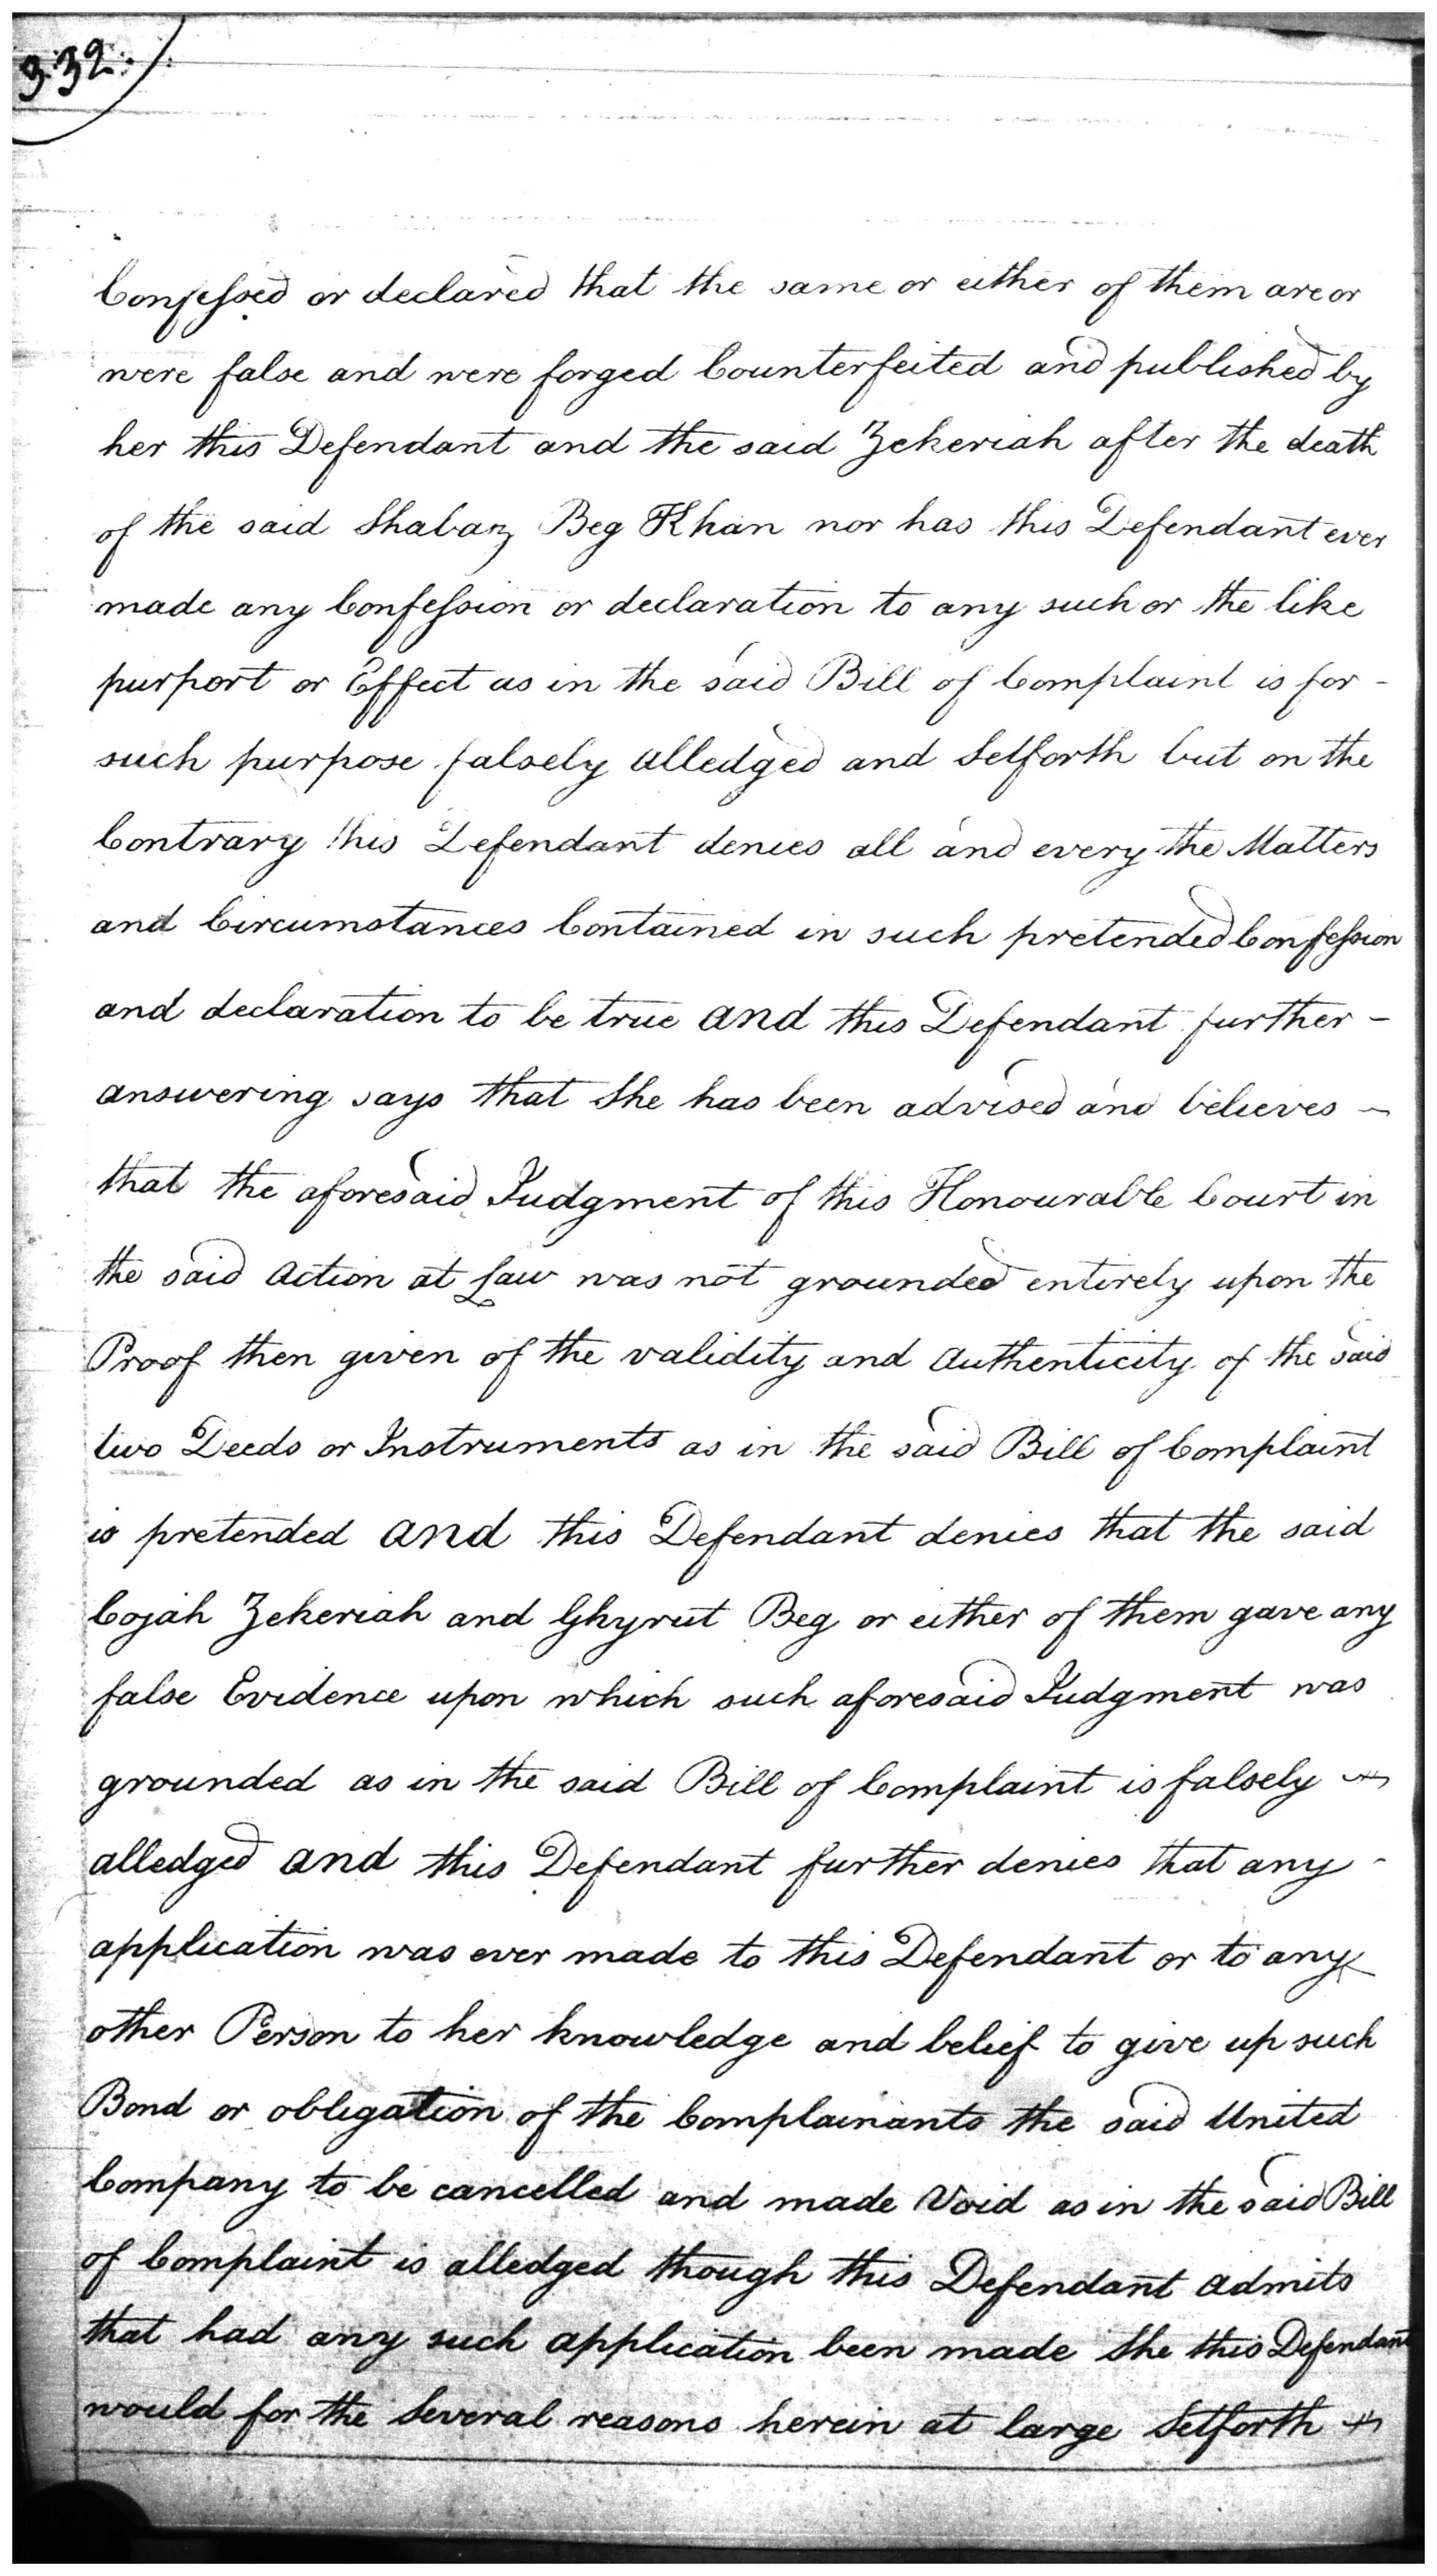 332
Confessed or declared that the same or either of them are or
were false and were forged Counterfeited and published by
her this Defendant and the said Zekeriah after the death
of the said Shabaz Beg Khan nor has this Defendant ever
made any Confession or declaration to any such or the like
purport or Effect as in the said Bill of Complaint is for -
such purpose falsely alledged and Setforth but on the
Contrary this Defendant denies all and every the Matters
and Circumstances Contained in such pretended Confession
and declaration to be true and this Defendant further -
answering says that She has been advised and believes -
that the aforesaid Judgment of this Honourable Court in
the said Action at Law was not grounded entirely upon the
Proof then given of the validity and Authenticity of the said
two Deeds or Instruments as in the said Bill of Complaint
is pretended and this Defendant denies that the said
Cojah Zekeriah and Ghyrut Beg or either of them gave any
false Evidence upon which such aforesaid Judgment was
grounded as in the said Bill of Complaint is falsely
alledged and this Defendant further denies that any -
application was ever made to this Defendant or to any
other Person to her knowledge and belief to give up such
Bond or obligation of the Complainants the said United
Company to be cancelled and made Void as in the said Bill
of Complaint is alledged though this Defendant admits
that had any such application been made She this Defendant
would for the Several reasons herein at large Setforth